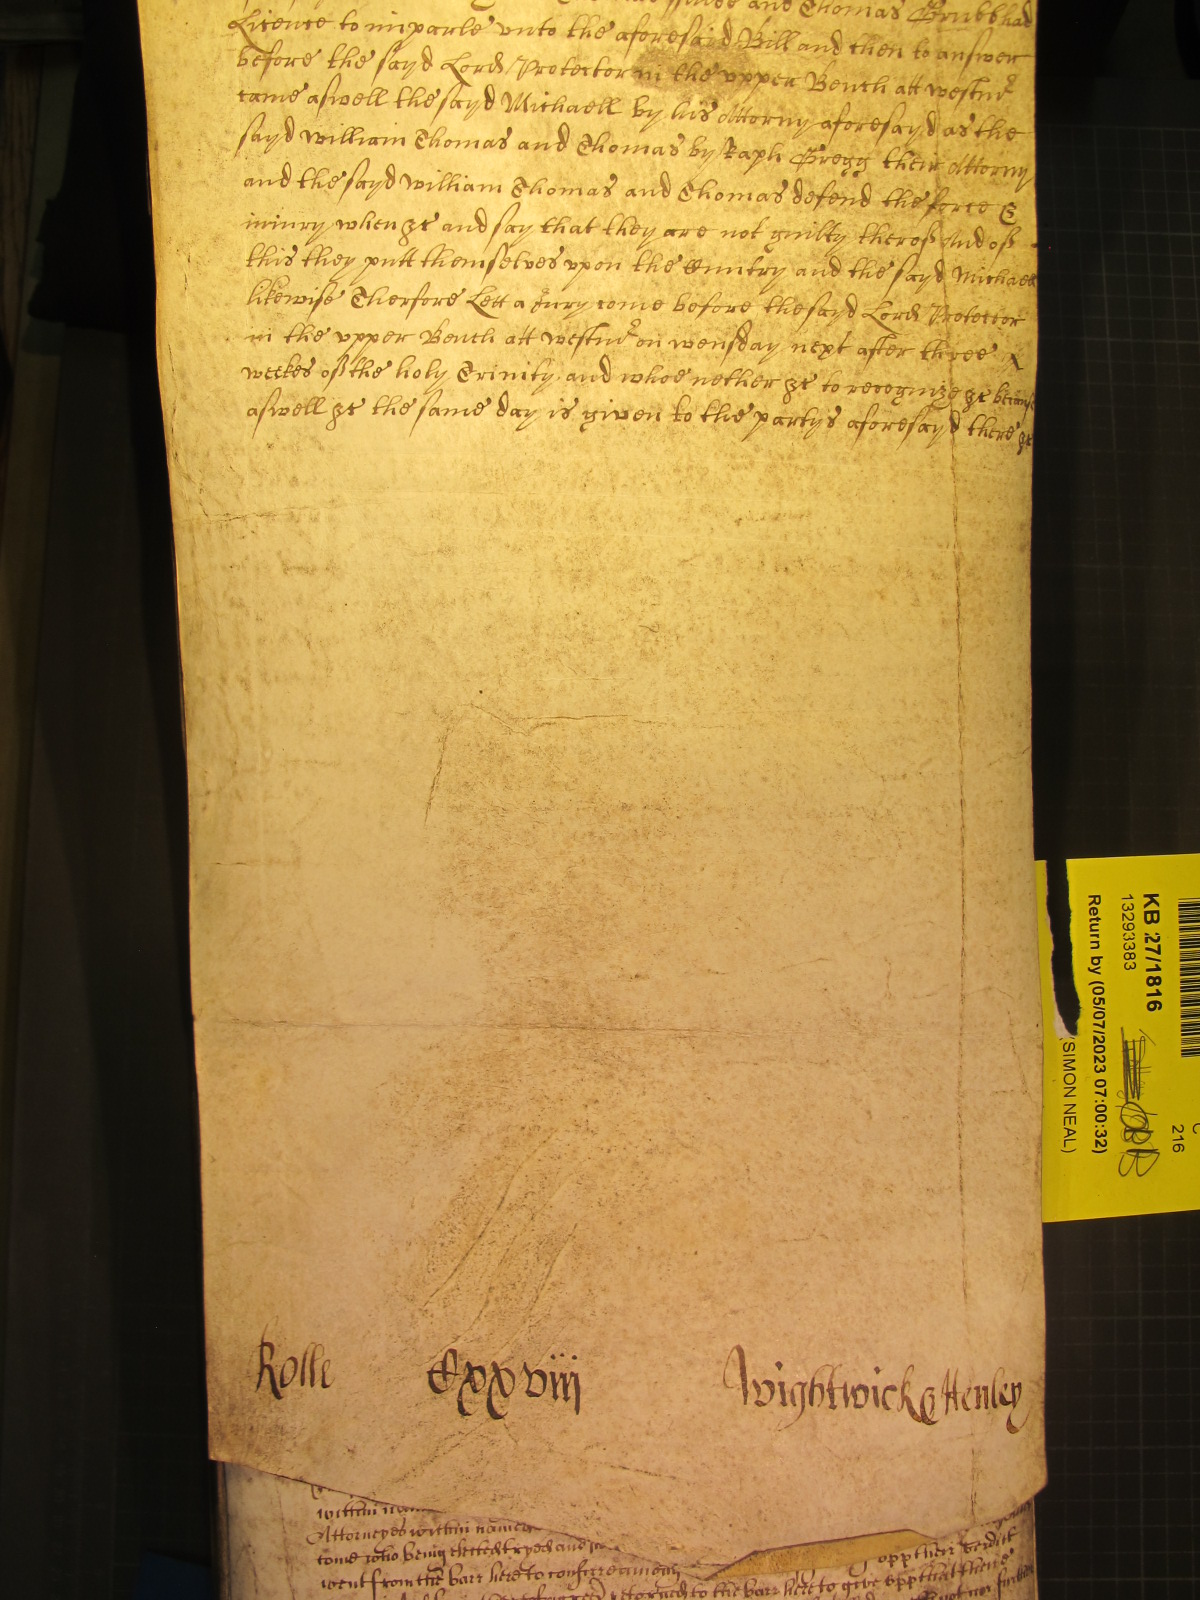 and Thomas Grubb had
Licence to imparle unto the aforesaid Bill and then to answer
before the sayd Lord Protector in the upper Bench att westmr
came aswell the sayd Michaell by his Attorny aforesayd as the
sayd William Thomas and Thomas by Raph Gregg their Attorny
and the sayd William Thomas and Thomas defend the force &
iniury when &c and say that they are not guilty therof And of
this they putt themselves upon the Cuntry and the sayd Michaell
likewise Therfore Lett a Jury come before the sayd Lord Protector
in the upper Bench att westmr on wensday next after three
weekes of the holy Trinity and whoe nether &c to recognize &c because
aswell &c the same day is given to the partys aforesayd there &c
Rolle Cxxviij Wightwick & Henley
within
Attorneyes within named
come who being elected tryed and
went from the barr here to conferr among
upp their verdict
retorned to the barr here to give upp that their
KB 27/1816
13293383
Return by (05/07/2023 07:00:32)
(SIMON NEAL)
216